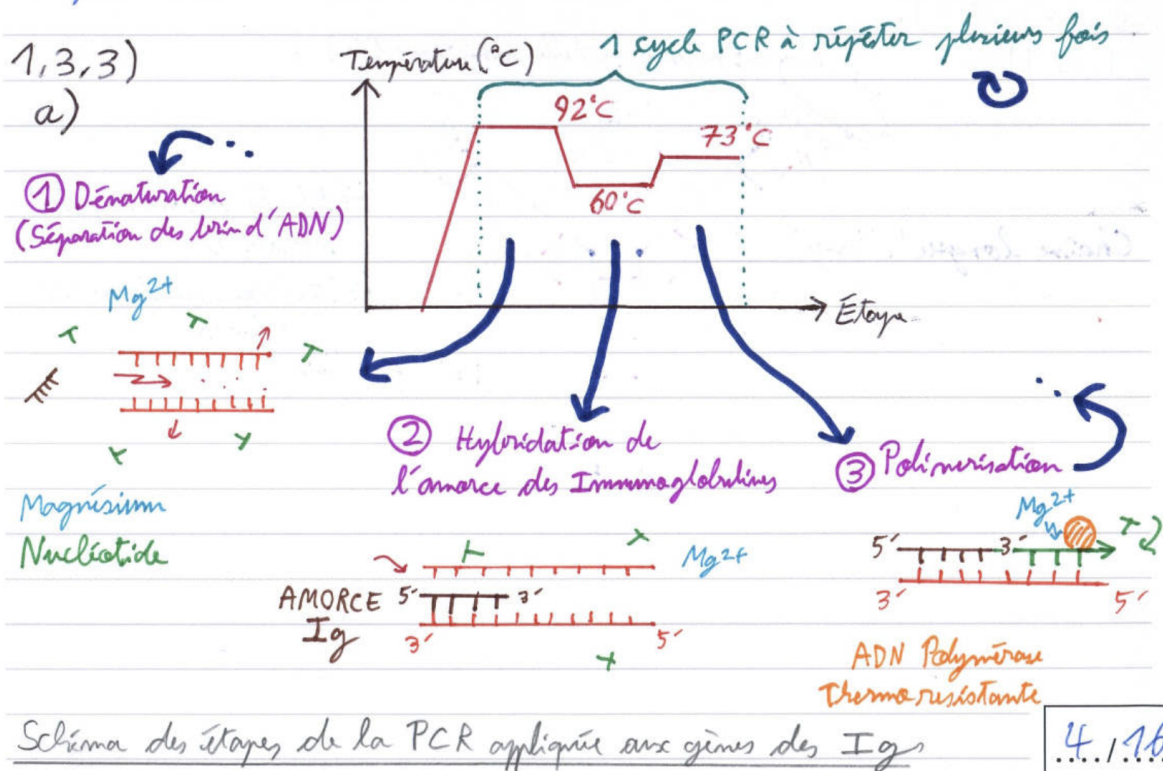 1,3,3)
a)
Température (°C)
1 cycle PCR à répéter plusieurs fois
92°C
73°C
60°C
Étape
① Dénaturation
(Séparation des brin d'ADN)
Mg²⁺
Magnésium
Nucléotide
② Hybridation de
l'amorce des Immunoglobulines
Mg²⁺
AMORCE
Ig
5' 3'
3' 5'
③ Polimérisation
Mg²⁺
5' 3'
3' 5'
ADN Polymérase
Thermoresistante
Schéma des étapes de la PCR appliquée aux gènes des Igs
4 / 16